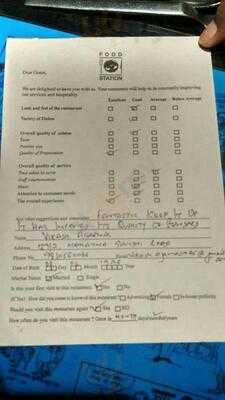 FOOD
STATION
Dear Guest,
We are delighted to have you with us. Your comments will help us in constantly improving
our services and hospitality.
Excellent Good Average Below Average
Look and feel of the restaurant
Variety of Dishes
Overall quality of cuisine
Taste
Portion size
Quality of Preparation
Overall quality of service
Time taken to serve
Staff courteousness
Attention to customer needs
The overall experience
Any other suggestions and comments FANTASTIC KEEP IT UP
IT HAS IMPROVED ITS QUALITY OF
Name VIKASH AGARWAL
Address MAHATMA GANDHI ROAD
Phone No.
Date of Birth Day Month Year
Marital Status Married Single
Is this your first visit to this restaurant? Yes No
(If Yes) How did you come to know of this restaurant Advertising Friends In-house publicity
Would you visit this restaurant again Yes NO
How often do you visit this restaurant ? Once in days/weeks/years